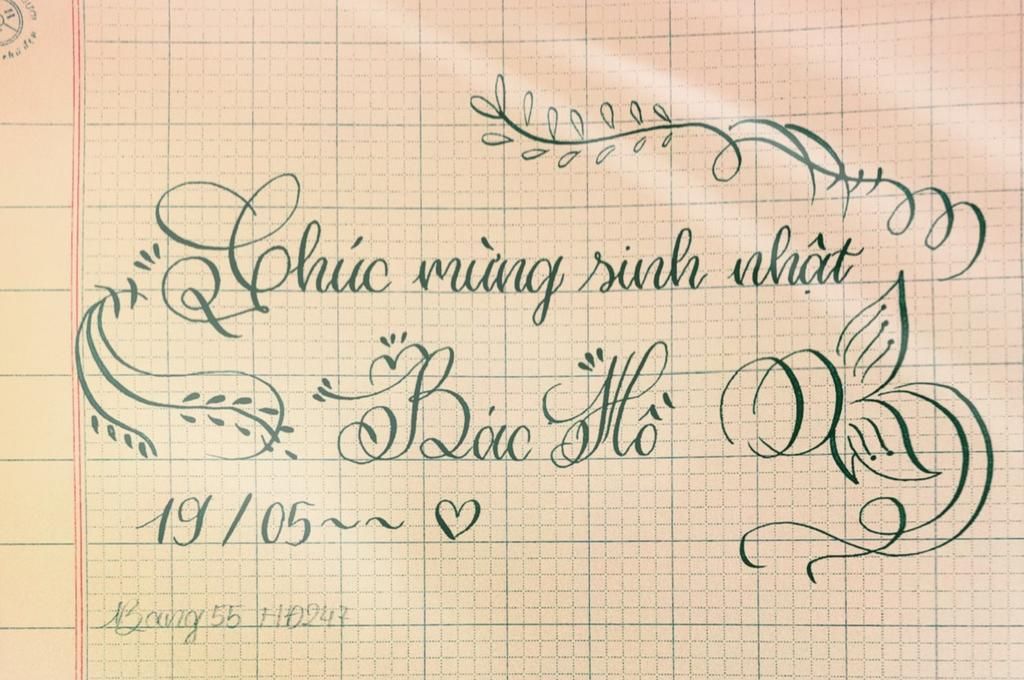 Chúc mừng sinh nhật
Bác Hồ
19/05~~ ♡
Bang 55 HĐ247